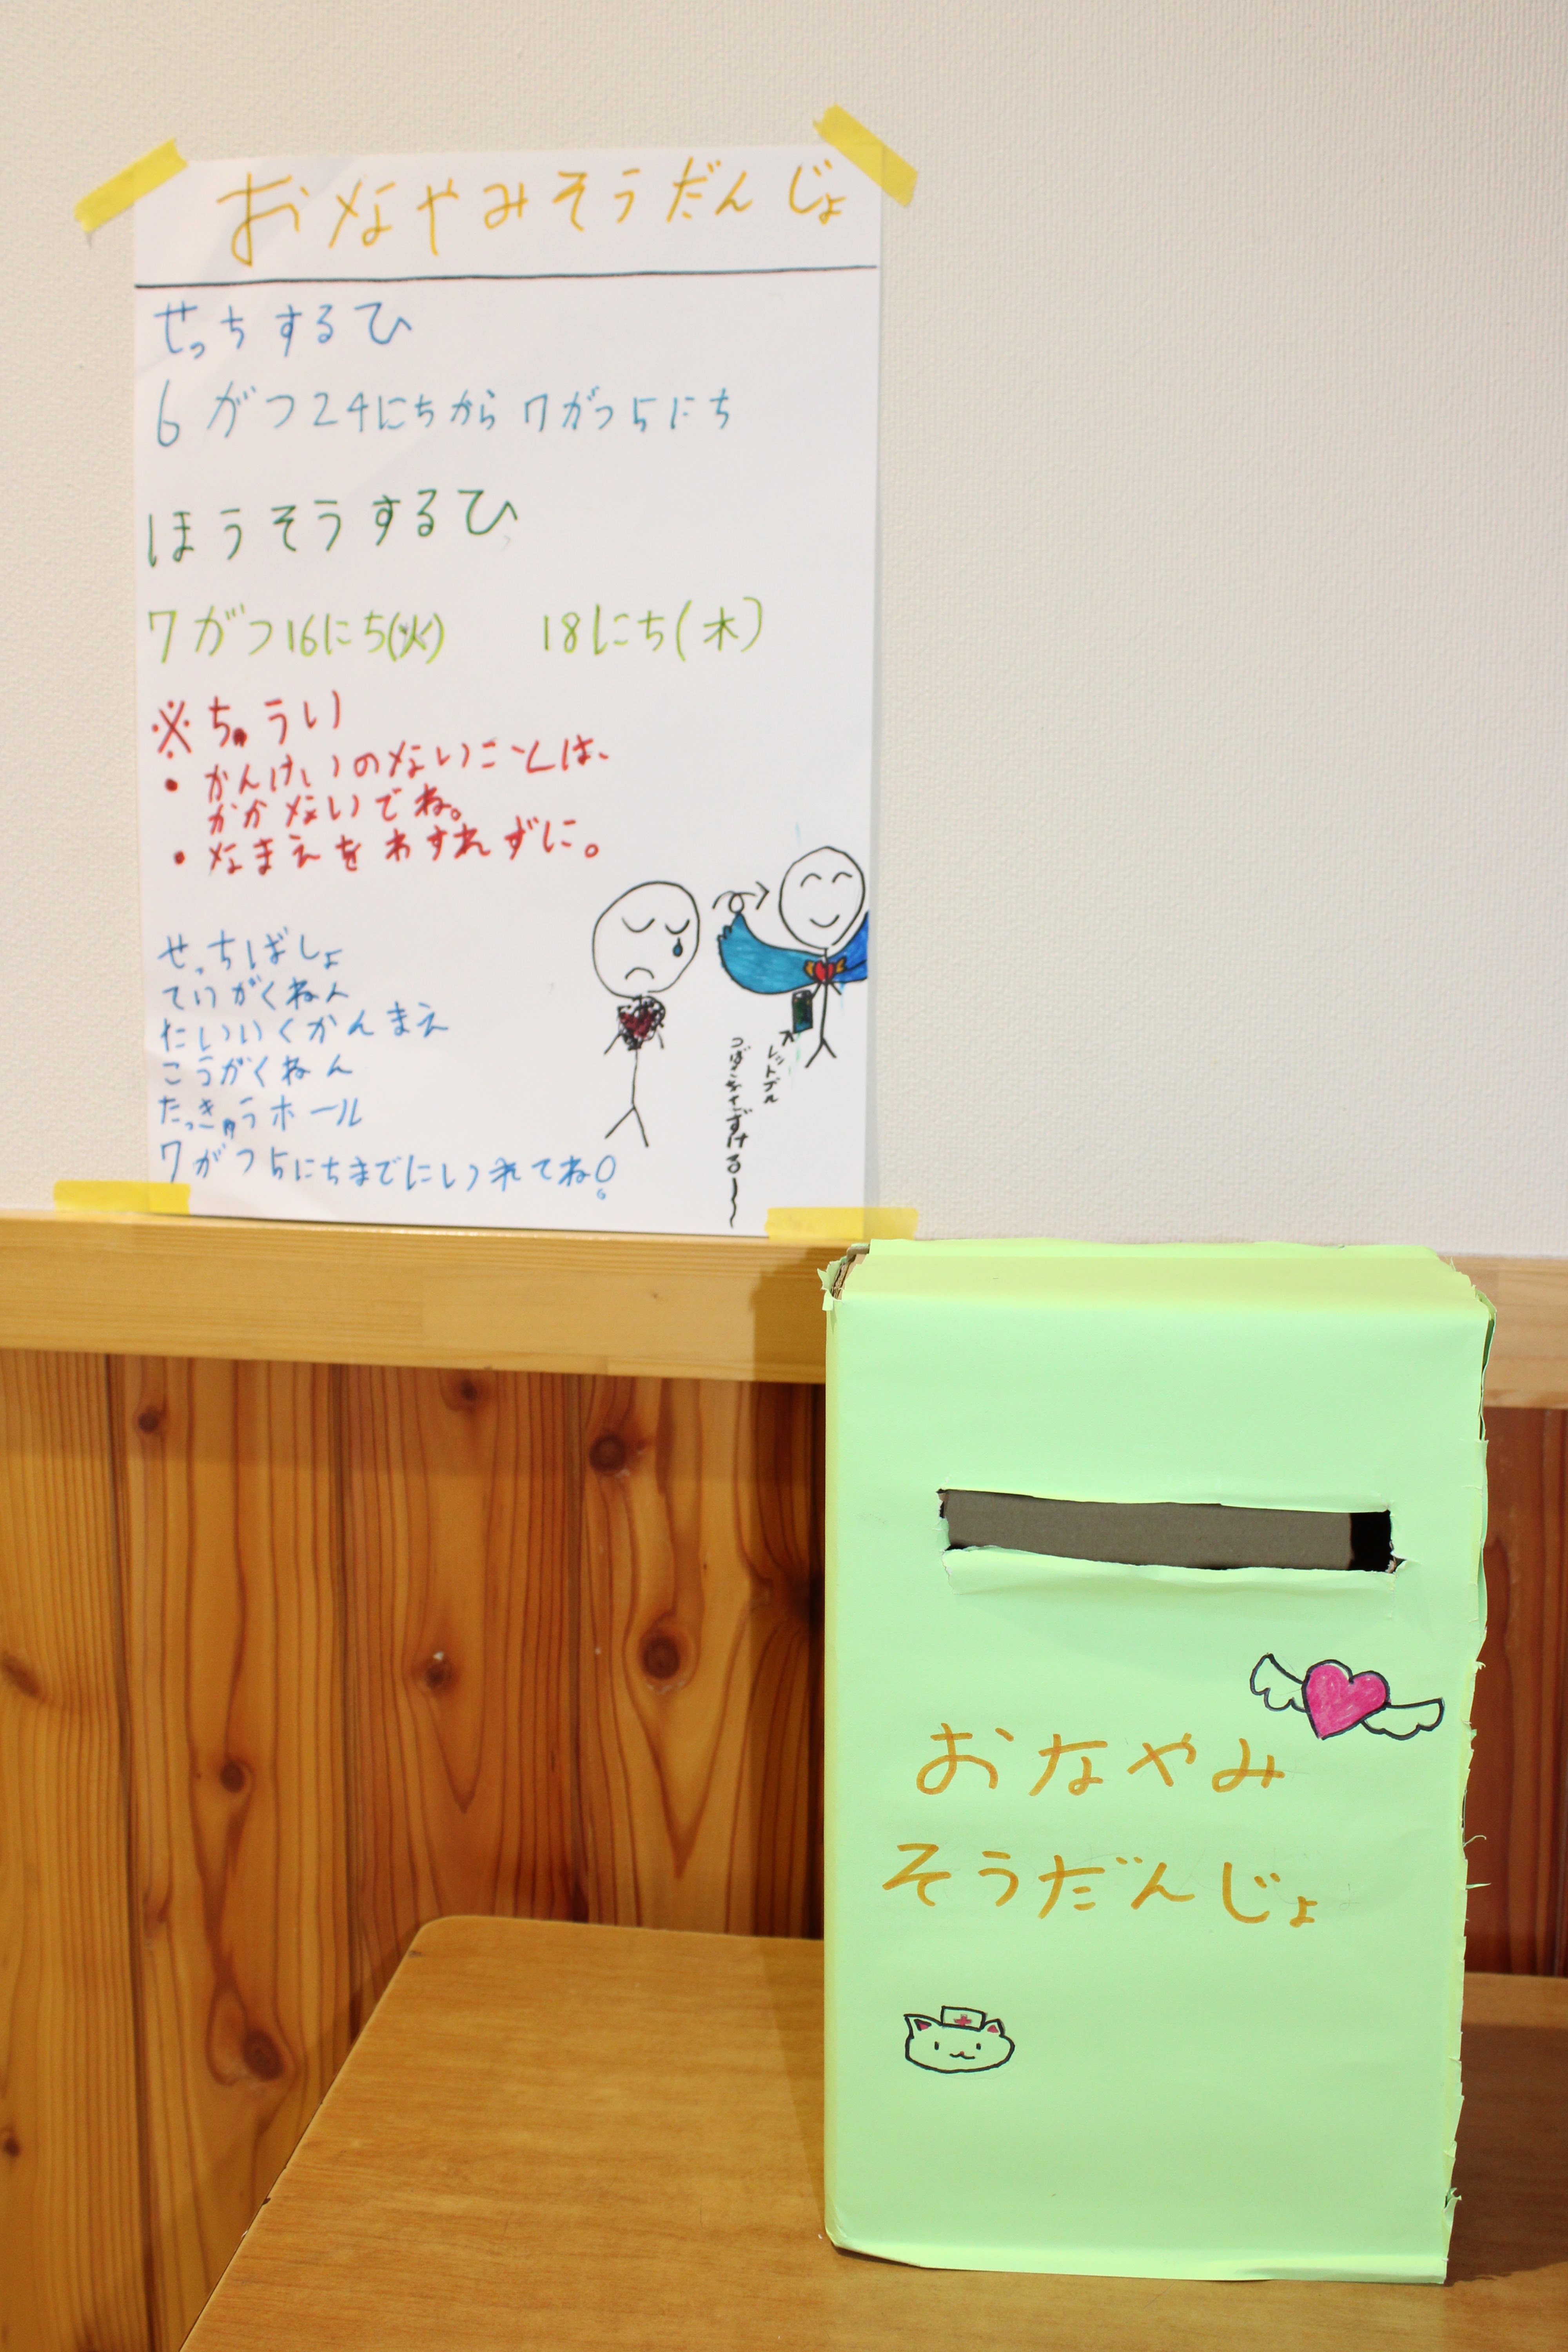 おなやみそうだんじょ
せっちするひ
6がつ24にちから7がつ5にち
ほうそうするひ
7がつ16にち(火) 18にち(木)
※ちゅうい
・かんけいのないことは、
かかないでね。
・なまえをわすれずに。
せっちばしょ
ていがくねん
たいいくかんまえ
こうがくねん
たっきゅうホール
7がつ5にちまでにいれてね!
レットブル
つばさをさずける〜
おなやみ
そうだんじょ